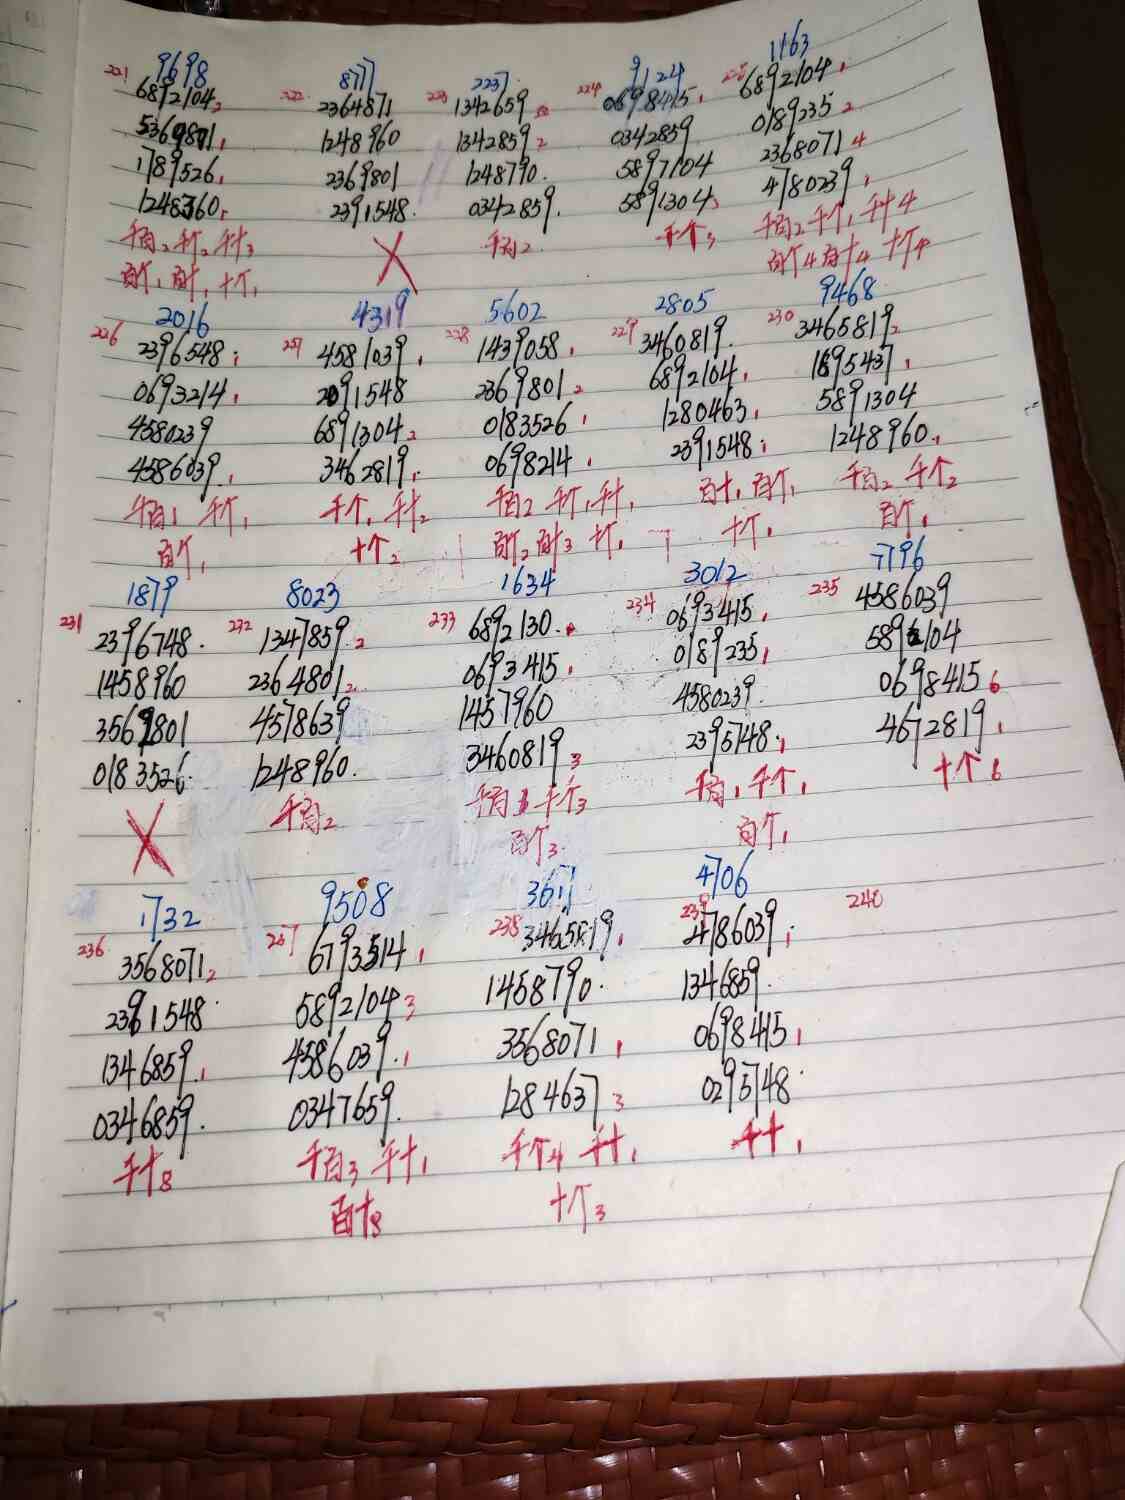 9698 8777 2237 9124 1163
221 6892104 2 222 2364871 223 1342659 224 0698415 1 225 6892104 1
5369871 1 1248960 1342859 2 0342859 0189235 2
1789526 1 2369801 1248790 5897104 2368071 4
1248360 1 2391548 0342859 5891304 3 4780239 1
千百2 千个2 千十3 X 千百2 千个3 千百2 千个1 千十4
百个1 百十1 十个1 百个4 百十4 十个4
2016 4319 5602 2805 9468
226 2396548 1 227 4581039 1 228 1439058 1 229 3460819 230 3465819 2
0693214 1 2091548 2369801 2 6892104 1 1895437 1
4580239 6891304 2 0183526 1 1280463 1 5891304
4586039 1 3462819 1 0698214 1 2391548 1 1248960 1
千百1 千个1 千个1 千十2 千百2 千个1 千十1 百十1 百个1 千百2 千个2
百个1 十个2 百个2 百十3 十个1 十个1 百个1
1879 8023 1634 3012 7796
231 2396748 232 1347859 2 233 6892130 234 0693415 1 235 4586039
1458960 2364801 2 0693415 1 0189235 1 5896104
3569801 4578639 1457960 4580239 0698415 6
0183526 1248960 3460819 3 2395748 1 4672819 1
X 千百2 千百 千个3 千百1 千个1 十个6
百个3 百个1
1732 9508 3611 4706
236 3568071 2 237 6793514 1 238 3465819 1 239 4786039 1 240
2391548 5892104 3 1458790 1346859
1346859 1 4586039 1 3568071 1 0698415 1
0346859 0347659 1284637 3 0295748
千十8 千百3 千十1 千个4 千十1 千十1
百十8 十个3